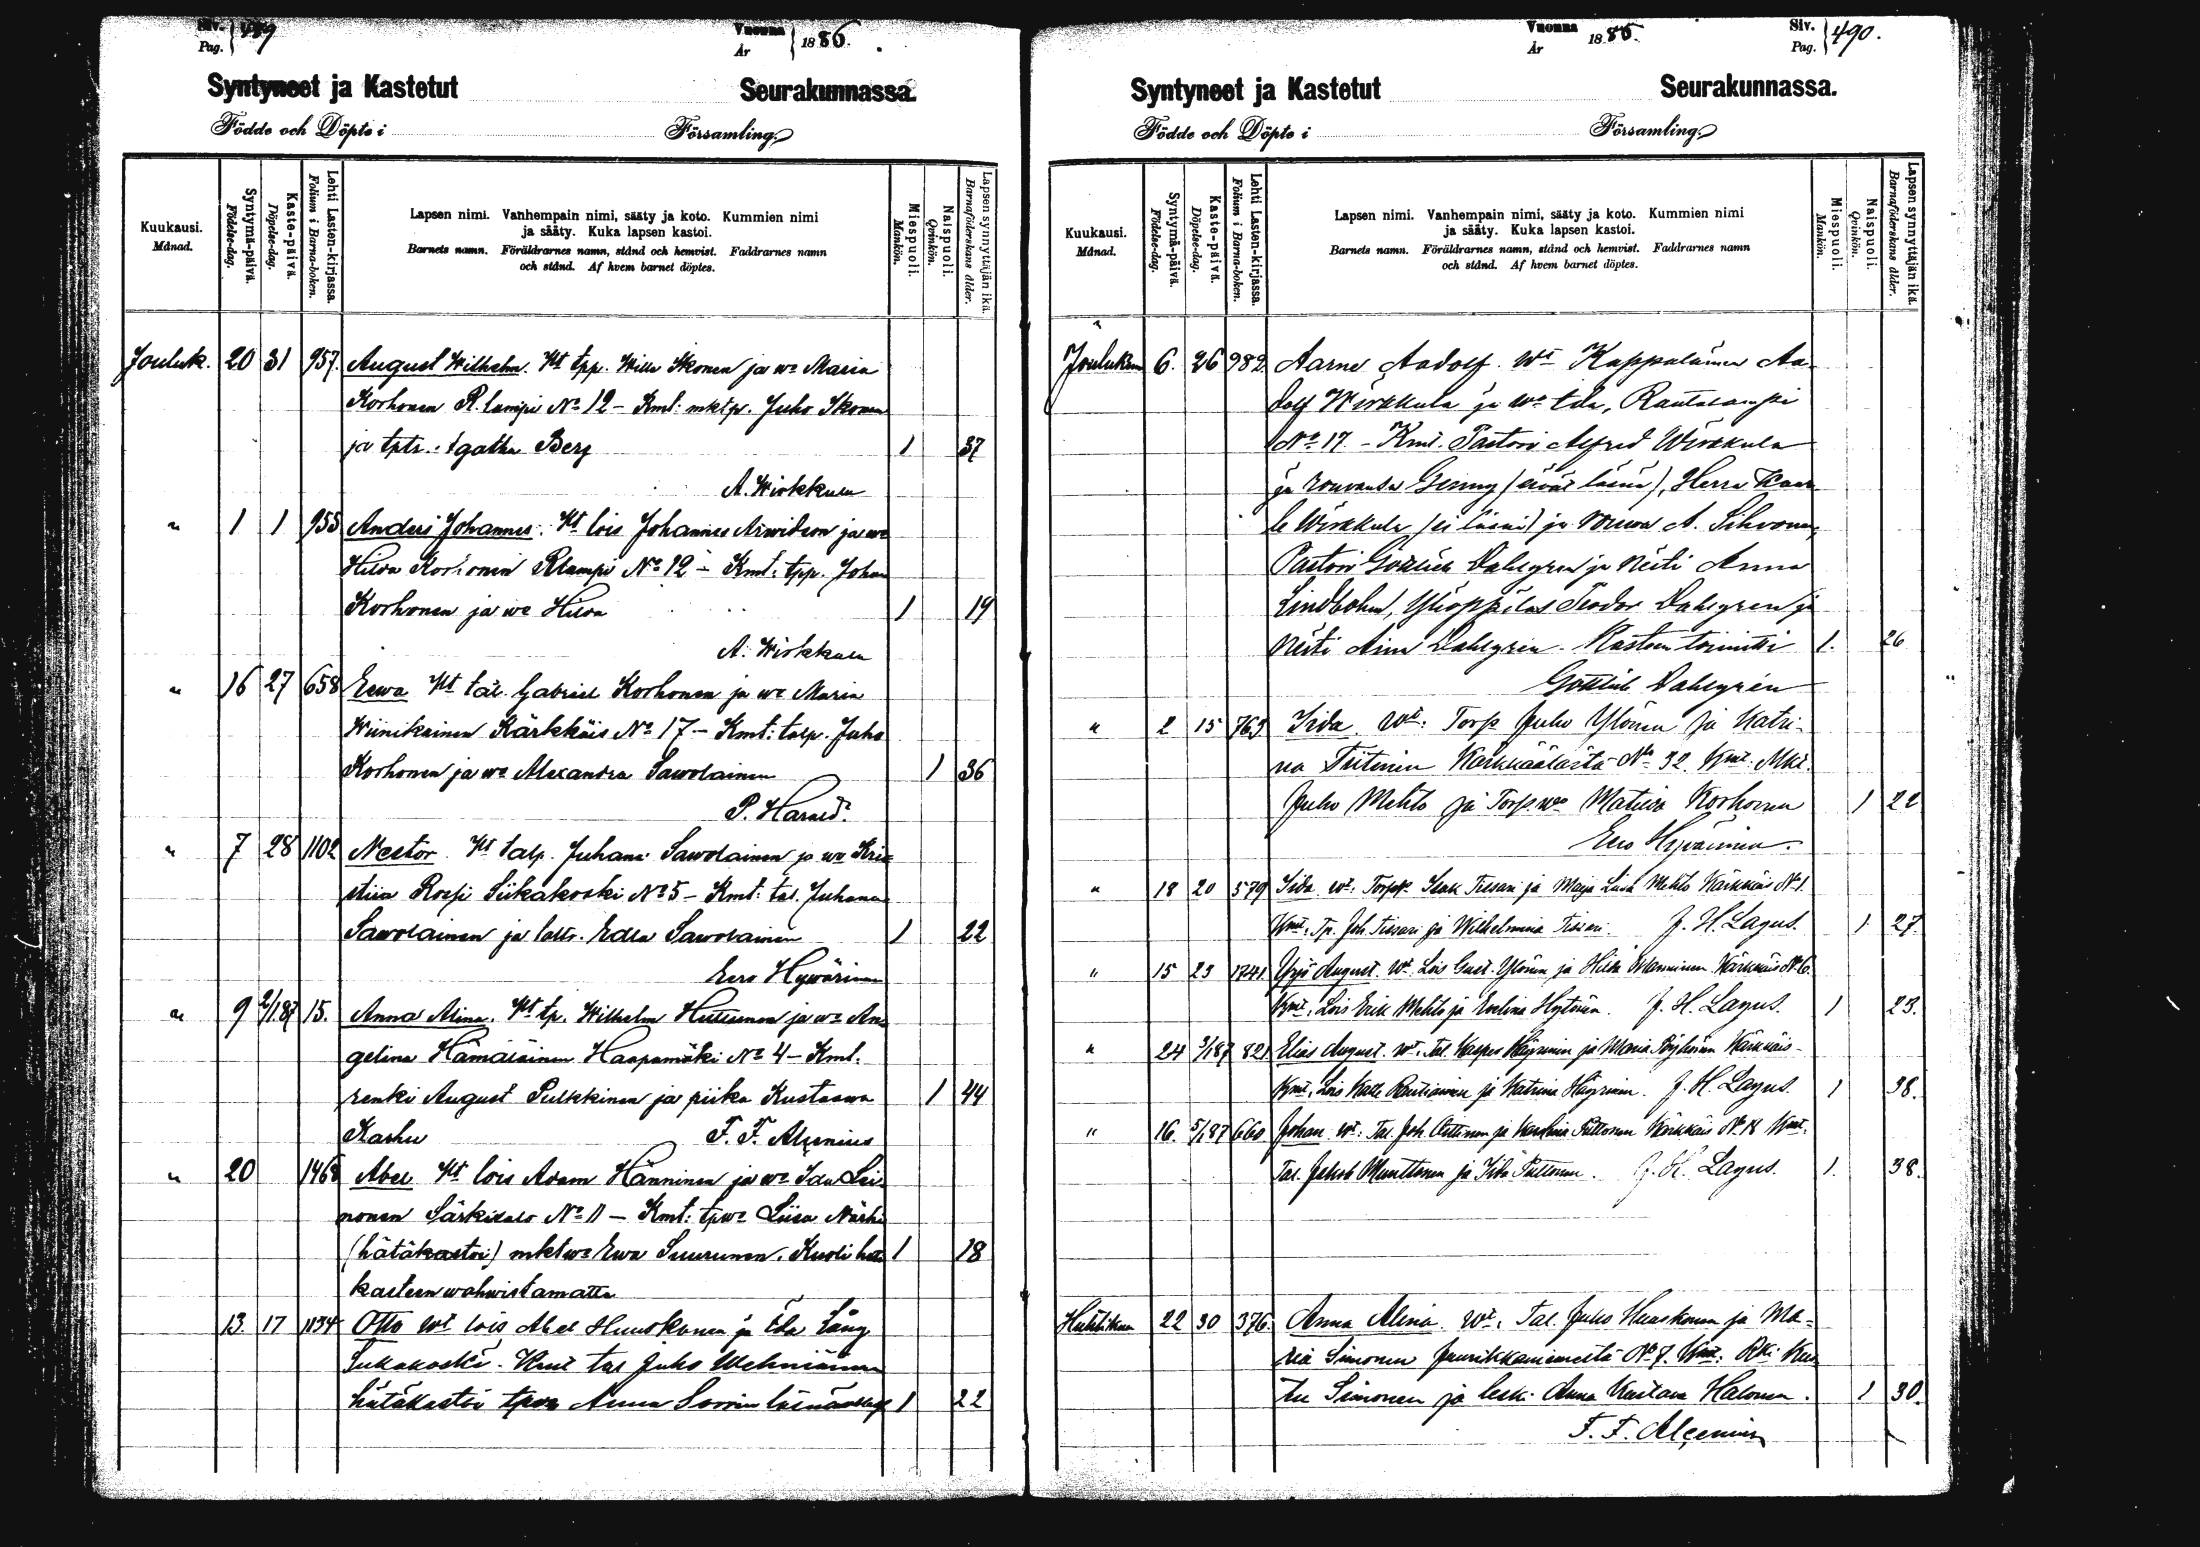 Siv. Pag. 489
Vuonna År 1886.
Syntyneet ja Kastetut Seurakunnassa.
Födde och Döpte i Församling
Kuukausi. Månad.
Syntymä-päivä. Födelse-dag.
Kaste-päivä. Döpelse-dag.
Lehti Lasten-kirjassa. Folium i Barna-boken.
Lapsen nimi. Vanhempain nimi, sääty ja koto. Kummien nimi
ja sääty. Kuka lapsen kastoi.
Barnets namn. Föräldrarnes namn, stånd och hemvist. Faddrarnes namn
och stånd. Af hvem barnet döptes.
Miespuoli. Mankön.
Naispuoli. Qvinkön.
Lapsen synnyttäjän ikä. Barnaföderskans ålder.
Jouluk. 20 31 957. August Wilhelm. Wt tpp. Wille Ikonen ja wo Maria
Korhonen R.lampi No 12 – Kmt: mktp. Juho Ikonen
ja tptr. Agatha Berg 1 37
A. Wirkkula
" 1 1 955 Anders Johannes. Wt lois Johannes Arwidson ja wo
Hilda Korhonen Rlampi No 12 – Kmt: tpp. Johan
Korhonen ja wo Hilda 1 19
A. Wirkkula
" 16 27 658 Eewa Wt tal. Gabriel Korhonen ja wo Maria
Wiinikainen Kärkkäis No 17 – Kmt: talp. Juho
Korhonen ja wo Alexandra Sawolainen 1 36
P. Harald.
" 7 28 1102 Nestor Wt talp. Juhana Sawolainen ja wo Kris
tiia Rossi Siikakoski No 5 – Kmt: tal. Juhana
Sawolainen ja taltr. Edla Sawolainen 1 22
Eero Hywärinen
" 9 2/1.87 15. Anna Alina. Wt tp. Wilhelm Huttunen ja wo An-
gelina Hämäläinen Haapamäki No 4 – Kmt.
renki August Pulkkinen ja piika Kustaawa 1 44
Karhu F. F. Alcenius
" 20 1468 Abel Wt lois Adam Hänninen ja wo Ida Lei-
nonen Särkisalo No 11 – Kmt: tpwo Liisa Närhi
(hätäkastoi) mktwo Ewa Suurunen. Kuoli hätä 1 18
kasteen wahwistamatta
13. 17 1134 Otto Wt lois Abel Huuskonen ja Eda Lång
Siikakoski. Kmt tal Juho Wehniäinen
hätäkastoi tpwo Anna Sorrin läsnäollessa 1 22
Vuonna År 1886.
Siv. Pag. 490.
Syntyneet ja Kastetut Seurakunnassa.
Födde och Döpte i Församling
Kuukausi. Månad.
Syntymä-päivä. Födelse-dag.
Kaste-päivä. Döpelse-dag.
Lehti Lasten-kirjassa. Folium i Barna-boken.
Lapsen nimi. Vanhempain nimi, sääty ja koto. Kummien nimi
ja sääty. Kuka lapsen kastoi.
Barnets namn. Föräldrarnes namn, stånd och hemvist. Faddrarnes namn
och stånd. Af hvem barnet döptes.
Miespuoli. Mankön.
Naispuoli. Qvinkön.
Lapsen synnyttäjän ikä. Barnaföderskans ålder.
Joulukun 6. 26 982 Aarne Aadolf. Wt Kappalainen Aa-
dolf Wirkkula ja wo Eda, Rautalampi
No 17. – Kmt. Pastori Alfred Wirkkula
ja rouvansa Genny (eivät läsnä), Herra Kaar
le Wirkkula (ei läsnä) ja rouva A. Sihvonen,
Pastori Gottlieb Dahlgren ja Neiti Anna
Lindbohm, Ylioppilas Teodor Dahlgren ja
Neiti Aina Dahlgren. Kasteen toimitti 1. 26
Gottlieb Dahlgrén
" 2 15 763 Iida. Wt: Torp Juho Ylönen ja Katri-
na Tiitinen Kärkkäälästä No 32. Kmt. Mkt.
Juho Mehto ja Torp. wo Matilda Korhonen 1 22
Eero Hyvärinen.
" 18 20 579 Iida Wt: Torpp. Isak Tissari ja Maija Liisa Mehto Kärkkäis No 1.
Kmt. Tp. Joh. Tissari ja Wilhelmina Tissari. J. H. Lagus. 1 27.
" 15 23 1241. Yrjö August. Wt. Lois Gust. Ylönen ja Hilda Manninen Kärkkäis No 6.
Kmt. Lois Erik Mehto ja Evelina Hytönen. J. H. Lagus. 1 23.
" 24 3/1.87 821 Elias August. Wt. Tal. Kasper Häyrinen ja Maria Pöyhönen Kärkkäis-
Kmt. Lois Kalle Rautiainen ja Katrina Häyrinen. J. H. Lagus. 1 38.
" 16. 5/1.87 660 Johan Wt: Tal. Joh. Arttinen ja Karolina Puttonen Kärkkäis No 18 Kmt.
Tal. Jakob Muuttonen ja Iida Puttonen. J. H. Lagus. 1. 38.
Huhtikun 22 30 376. Anna Alina. Wt. Tal. Juho Huuskonen ja Ma-
ria Simonen Juurikkaniemeltä No 7. Kmt: Rki. Kus
tu Simonen ja leski Anna Kustava Halonen. 1 30.
F. F. Alcenius